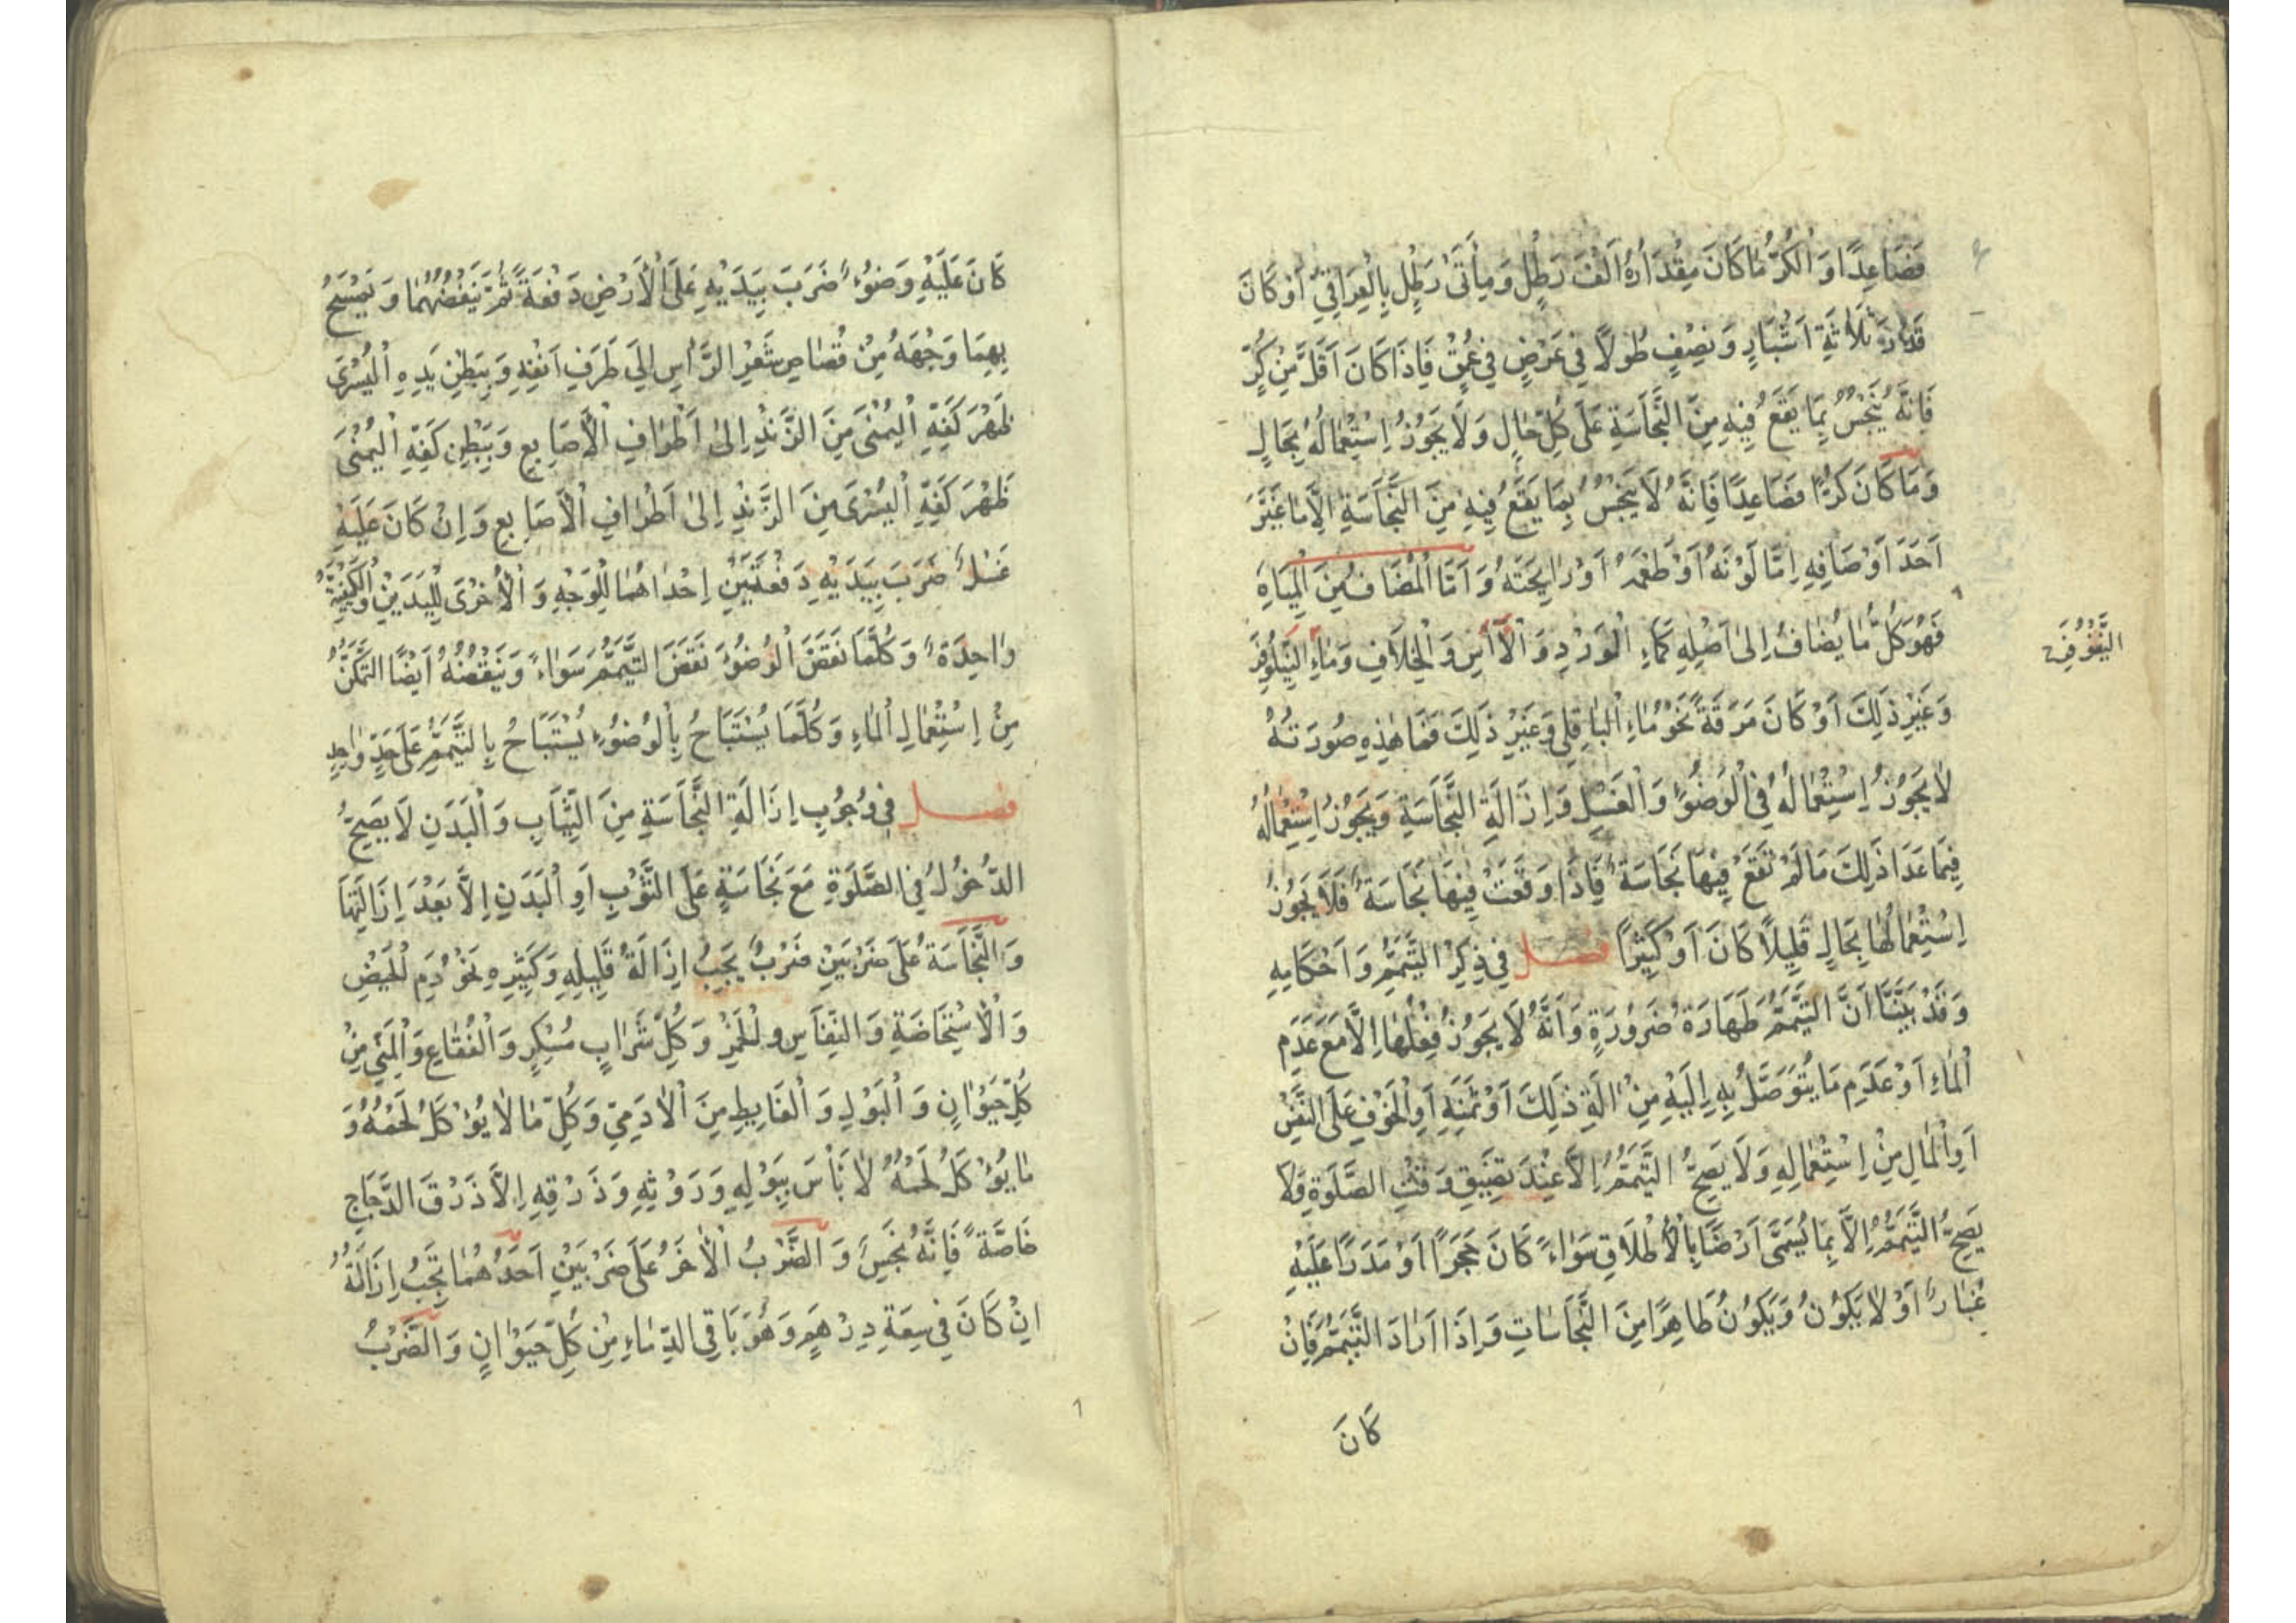 فَصَاعِدًا وَالْكُرُّ مَا كَانَ مِقْدَارُهُ اَلْفَ رَطْلٍ وَمِأَتَىْ رَطْلٍ بِالْعِرَاقِيِّ اَوْ كَانَ
قَدْرَ ثَلَاثَةِ اَشْبَارٍ وَنِصْفٍ طُولًا فِي عَرْضٍ فِي عُمْقٍ فَاِذَا كَانَ اَقَلَّ مِنْ كُرٍّ
فَاِنَّهُ يَنْجُسُ بِمَا يَقَعُ فِيهِ مِنَ النَّجَاسَةِ عَلَى كُلِّ حَالٍ وَلَا يَجُوزُ اِسْتِعْمَالُهُ بِحَالٍ
وَمَا كَانَ كُرًّا فَصَاعِدًا فَاِنَّهُ لَا يَنْجُسُ بِمَا يَقَعُ فِيهِ مِنَ النَّجَاسَةِ اِلَّا مَا غَيَّرَ
اَحَدَ اَوْصَافِهِ اِمَّا لَوْنَهُ اَوْ طَعْمَهُ اَوْ رَايِحَتَهُ وَاَمَّا الْمُضَافُ مِنَ الْمِيَاهِ
فَهُوَ كُلُّ مَا يُضَافُ اِلَى اَصْلِهِ كَمَاءِ الْوَرْدِ وَالْآسِ وَالْخِلَافِ وَمَاءِ النِّيلُوفَرِ
وَغَيْرِ ذَلِكَ اَوْ كَانَ مَرَقَةً نَحْوُ مَاءِ الْبَاقِلِي وَغَيْرِ ذَلِكَ فَمَا هَذِهِ صُورَتُهُ
لَا يَجُوزُ اِسْتِعْمَالُهُ فِي الْوُضُوءِ وَالْغُسْلِ وَاِزَالَةِ النَّجَاسَةِ وَيَجُوزُ اِسْتِعْمَالُهُ
فِيمَا عَدَا ذَلِكَ مَا لَمْ تَقَعْ فِيهَا نَجَاسَةٌ فَاِذَا وَقَعَتْ فِيهَا نَجَاسَةٌ فَلَا يَجُوزُ
اِسْتِعْمَالُهَا بِحَالٍ قَلِيلًا كَانَ اَوْ كَثِيرًا فصل فِي ذِكْرِ التَّيَمُّمِ وَاَحْكَامِهِ
وَقَدْ بَيَّنَّا اَنَّ التَّيَمُّمَ طَهَارَةُ ضَرُورَةٍ وَاَنَّهُ لَا يَجُوزُ فِعْلُهَا اِلَّا مَعَ عَدَمِ
الْمَاءِ اَوْ عَدَمِ مَا يُتَوَصَّلُ بِهِ اِلَيْهِ مِنْ اٰلَةِ ذَلِكَ اَوْ ثَمَنِهِ اَوِ الْخَوْفِ عَلَى النَّفْسِ
اَوِ الْمَالِ مِنْ اِسْتِعْمَالِهِ وَلَا يَصِحُّ التَّيَمُّمُ اِلَّا عِنْدَ تَضِيقِ وَقْتِ الصَّلَوةِ وَلَا
يَصِحُّ التَّيَمُّمُ اِلَّا بِمَا يُسَمَّى اَرْضًا بِالْاِطْلَاقِ سَوَاءً كَانَ حَجَرًا اَوْ مَدَرًا عَلَيْهِ
غُبَارٌ اَوْ لَا يَكُونُ وَيَكُونُ طَاهِرًا مِنَ النَّجَاسَاتِ وَاِذَا اَرَادَ التَّيَمُّمَ فَاِنْ
كَانَ
كَانَ عَلَيْهِ وَضُوءٌ ضَرَبَ بِيَدَيْهِ عَلَى الْاَرْضِ دَفْعَةً ثُمَّ يَنْفُضُهُمَا وَيَمْسَحُ
بِهِمَا وَجْهَهُ مِنْ قُصَاصِ شَعْرِ الرَّأْسِ اِلَى طَرَفِ اَنْفِهِ وَبِبَطْنِ يَدِهِ الْيُسْرَى
ظَهْرَ كَفِّهِ الْيُمْنَى مِنَ الزَّنْدِ اِلَى اَطْرَافِ الْاَصَابِعِ وَبِبَطْنِ كَفِّهِ الْيُمْنَى
ظَهْرَ كَفِّهِ الْيُسْرَى مِنَ الزَّنْدِ اِلَى اَطْرَافِ الْاَصَابِعِ وَاِنْ كَانَ عَلَيْهِ
غُسْلٌ ضَرَبَ بِيَدَيْهِ دَفْعَتَيْنِ اِحْدَاهُمَا لِلْوَجْهِ وَالْاُخْرَى لِلْيَدَيْنِ وَالْكَيْفِيَّةُ
وَاحِدَةٌ وَكُلَّمَا نَقَضَ الْوُضُوءَ نَقَضَ التَّيَمُّمَ سَوَاءً وَيَنْقُضُهُ اَيْضًا التَّمَكُّنُ
مِنْ اِسْتِعْمَالِ الْمَاءِ وَكُلَّمَا يُسْتَبَاحُ بِالْوُضُوءِ يُسْتَبَاحُ بِالتَّيَمُّمِ عَلَى حَدٍّ وَاحِدٍ
فصل فِي وُجُوبِ اِزَالَةِ النَّجَاسَةِ مِنَ الثِّيَابِ وَالْبَدَنِ لَا يَصِحُّ
الدُّخُولُ فِي الصَّلَوةِ مَعَ نَجَاسَةٍ عَلَى الثَّوْبِ اَوِ الْبَدَنِ اِلَّا بَعْدَ اِزَالَتِهَا
وَالنَّجَاسَةُ عَلَى ضَرْبَيْنِ ضَرْبٌ يَجِبُ اِزَالَةُ قَلِيلِهِ وَكَثِيرِهِ نَحْوُ دَمِ الْحَيْضِ
وَالْاِسْتِحَاضَةِ وَالنِّفَاسِ وَالْخَمْرِ وَكُلِّ شَرَابٍ مُسْكِرٍ وَالْفُقَاعِ وَالْمَنِيِّ مِنْ
كُلِّ حَيَوَانٍ وَالْبَوْلِ وَالْغَايِطِ مِنَ الْاٰدَمِيِّ وَكُلِّ مَا لَا يُؤْكَلُ لَحْمُهُ وَ
مَا يُؤْكَلُ لَحْمُهُ لَا بَأْسَ بِبَوْلِهِ وَرَوْثِهِ وَذَرْقِهِ اِلَّا ذَرْقَ الدَّجَاجِ
خَاصَّةً فَاِنَّهُ نَجِسٌ وَالضَّرْبُ الْاٰخَرُ عَلَى ضَرْبَيْنِ اَحَدُهُمَا تَجِبُ اِزَالَتُهُ
اِنْ كَانَ فِي سِعَةِ دِرْهَمٍ وَهُوَ بَاقِي الدِّمَاءِ مِنْ كُلِّ حَيَوَانٍ وَالضَّرْبُ